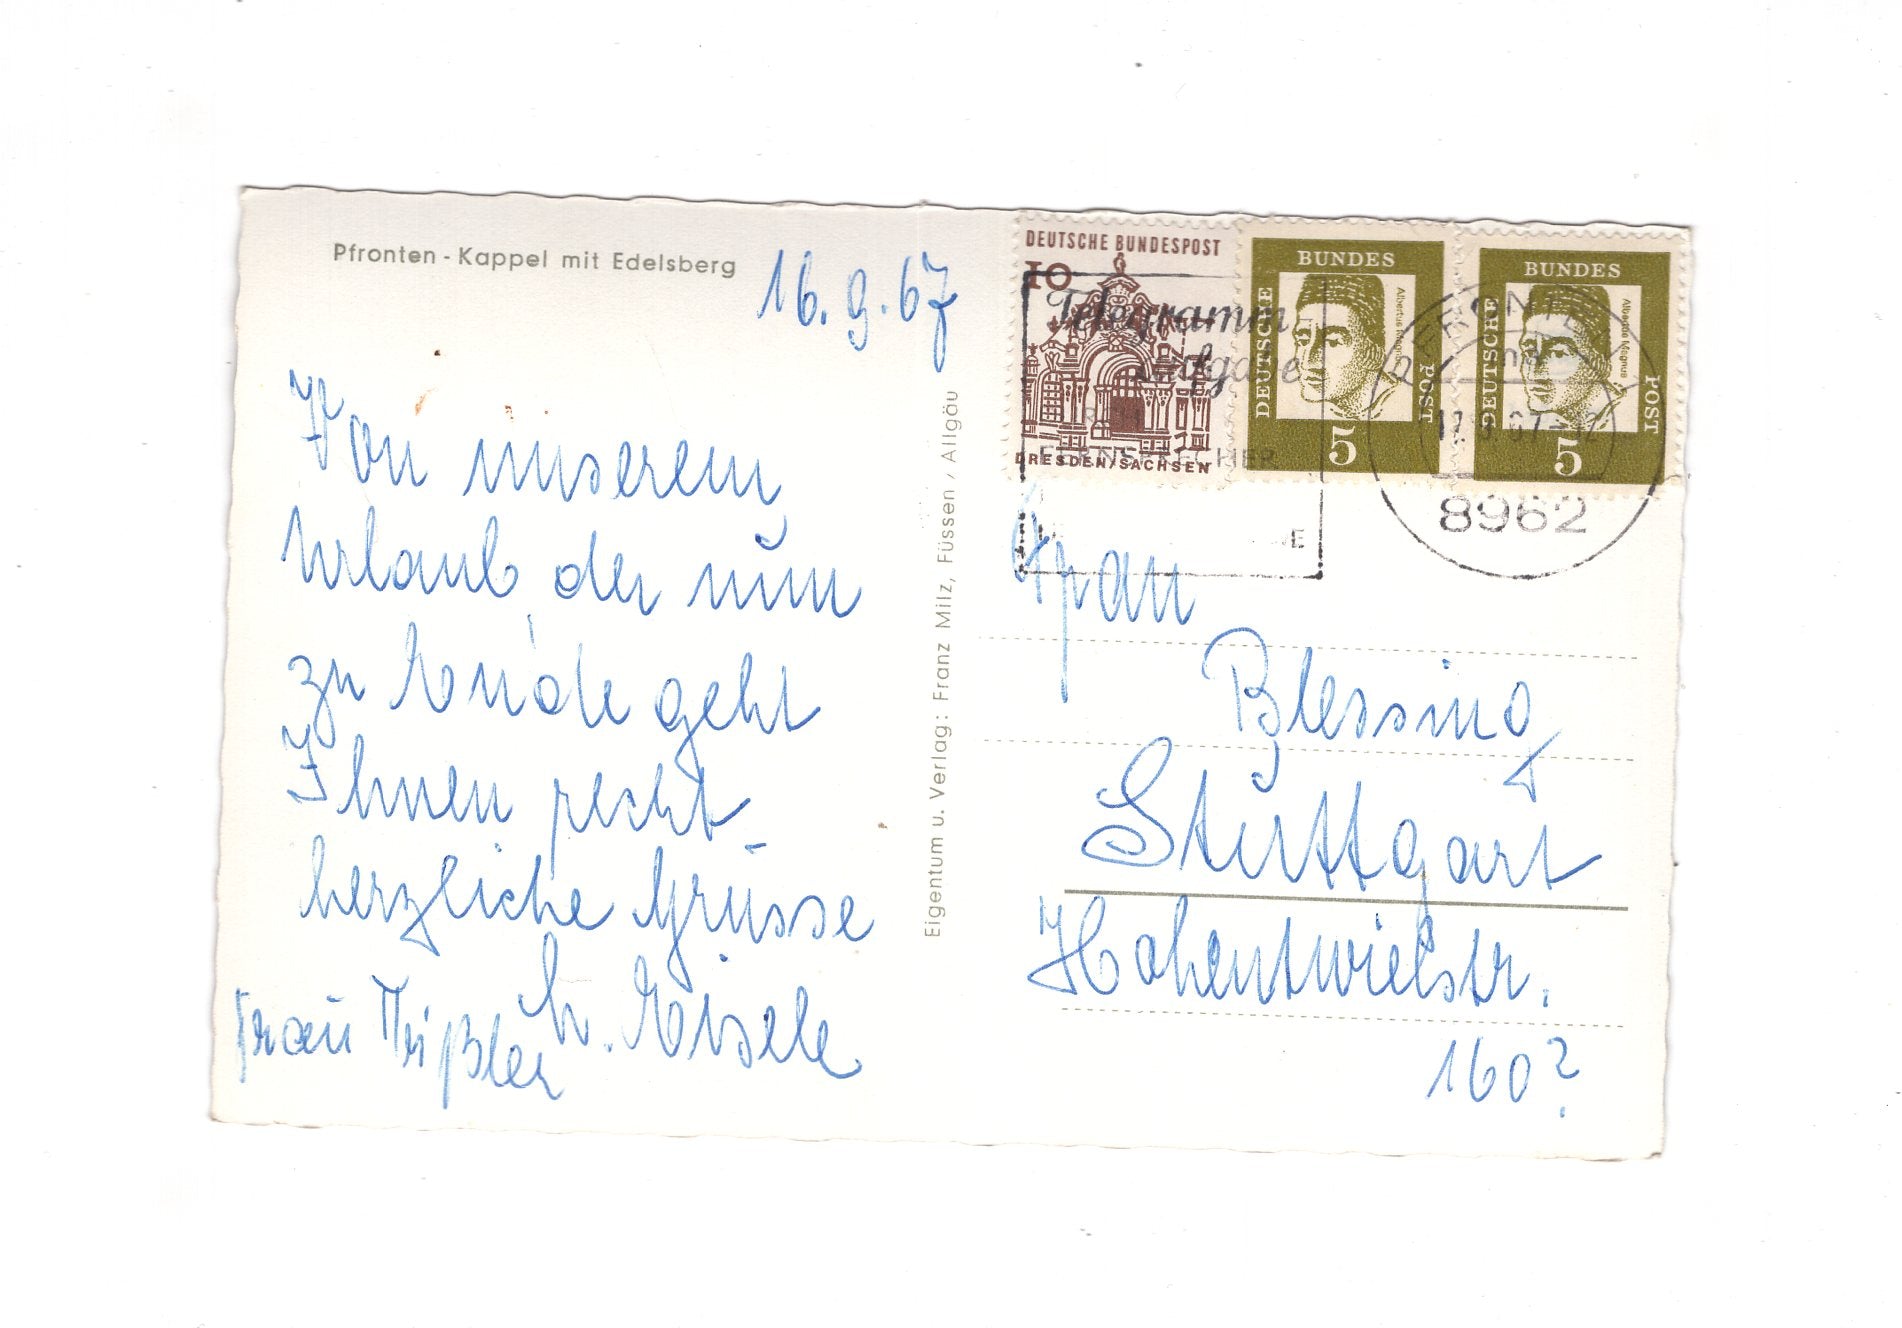 Pfronten - Kappel mit Edelsberg
16.9.67
Von unserem
Urlaub der nun
zu Ende geht
Ihnen recht
herzliche Grüsse
Eisele
Frau
Eigentum u. Verlag: Franz Milz, Füssen / Allgäu
DEUTSCHE BUNDESPOST
10
DRESDEN/SACHSEN
DEUTSCHE BUNDES POST
Albertus Magnus
5
DEUTSCHE BUNDES POST
Albertus Magnus
5
Telegramm-
aufgabe
FERNSPRECHER
PFRONTEN
17.9.67-12
8962
Frau
Blessing
Stuttgart
Hohentwielstr.
160?